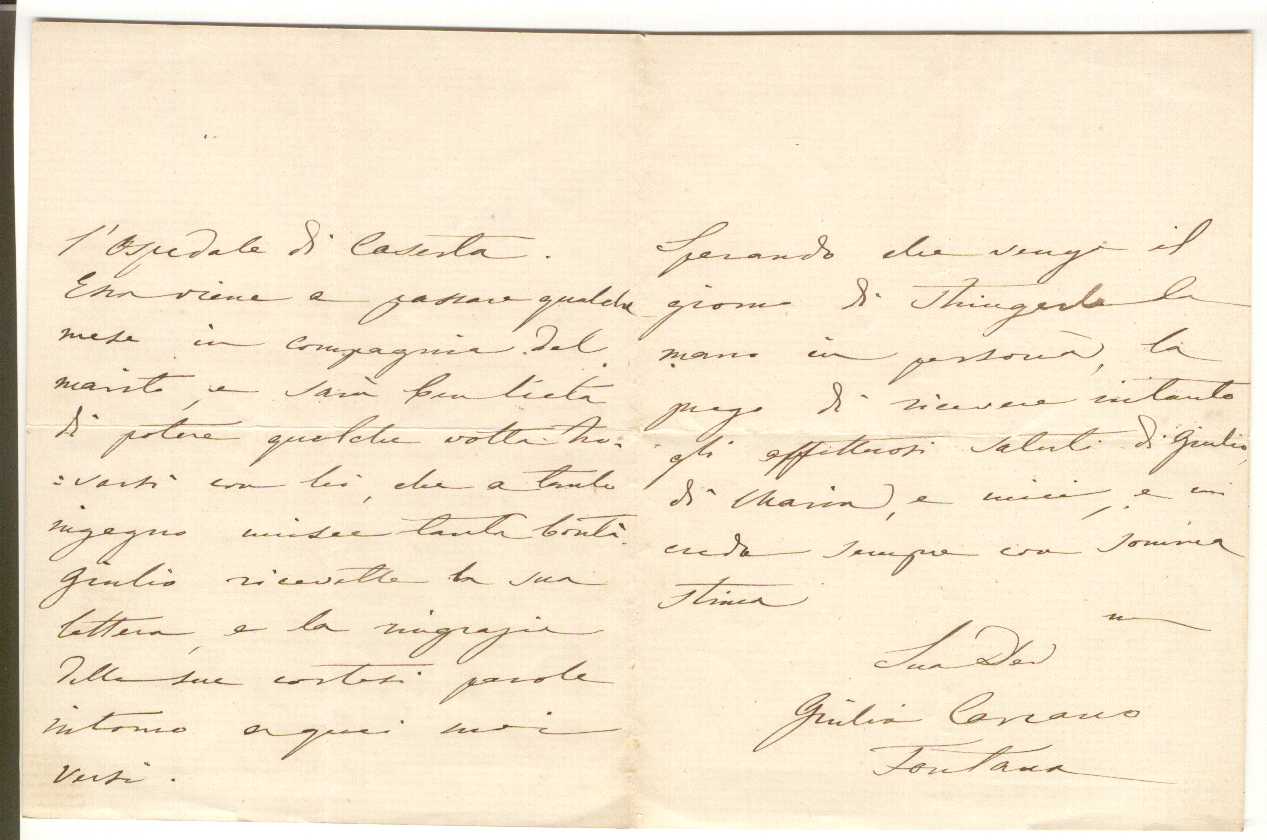 l'Ospedale di Caserta.
Essa viene a passare qualche
mese in compagnia del
marito, e sarà ben lieta
di potere qualche volta tro-
:varsi con lei, che a tanto
ingegno unisce tanta bontà.
Giulio ricevette la sua
lettera, e la ringrazia
delle sue cortesi parole
intorno a quei suoi
versi.
Sperando che venga il
giorno di stringerle la
mano in persona, la
prego di ricevere intanto
gli affettuosi saluti di Giulio,
di Maria, e miei, e mi
creda sempre con somma
stima
Sua Dev ma
Giulia Carcano
Fontana